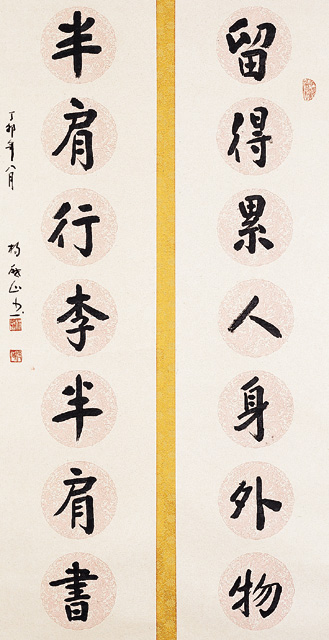 留得累人身外物
半肩行李半肩書
丁卯年八月
楊啟山書